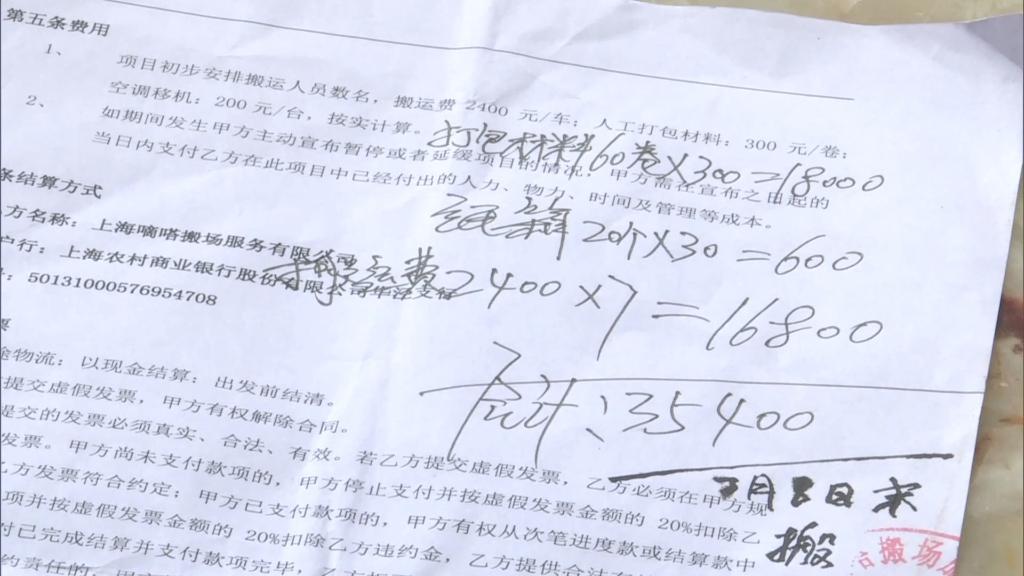 第五条费用
1、 项目初步安排搬运人员数名，搬运费 2400 元/车；人工打包材料：300 元/卷；
空调移机：200 元/台，按实计算。
打包材料60卷X300=18000
2、 如期间发生甲方主动宣布暂停或者延缓项目的情况，甲方需在宣布之日起的
当日内支付乙方在此项目中已经付出的人力、物力、时间及管理等成本。
纸箱 20个X30=600
条结算方式
方名称：上海嘀嗒搬场服务有限公司
户行：上海农村商业银行股份有限公司华泾支行
：50131000576954708
搬运费2400×7=16800
票
物流：以现金结算：出发前结清。
合计：35400
提交虚假发票，甲方有权解除合同。
提交的发票必须真实、合法、有效。若乙方提交虚假发票，乙方必须在甲方规
发票。甲方尚未支付款项的，甲方停止支付并按虚假发票金额的 20%扣除乙
乙方发票符合约定；甲方已支付款项的，甲方有权从次笔进度款或结算款中
项并按虚假发票金额的 20%扣除乙方违约金，乙方提供合法
付已完成结算并支付款项完毕，乙方
约责任的，甲方
月8日来
搬
搬场